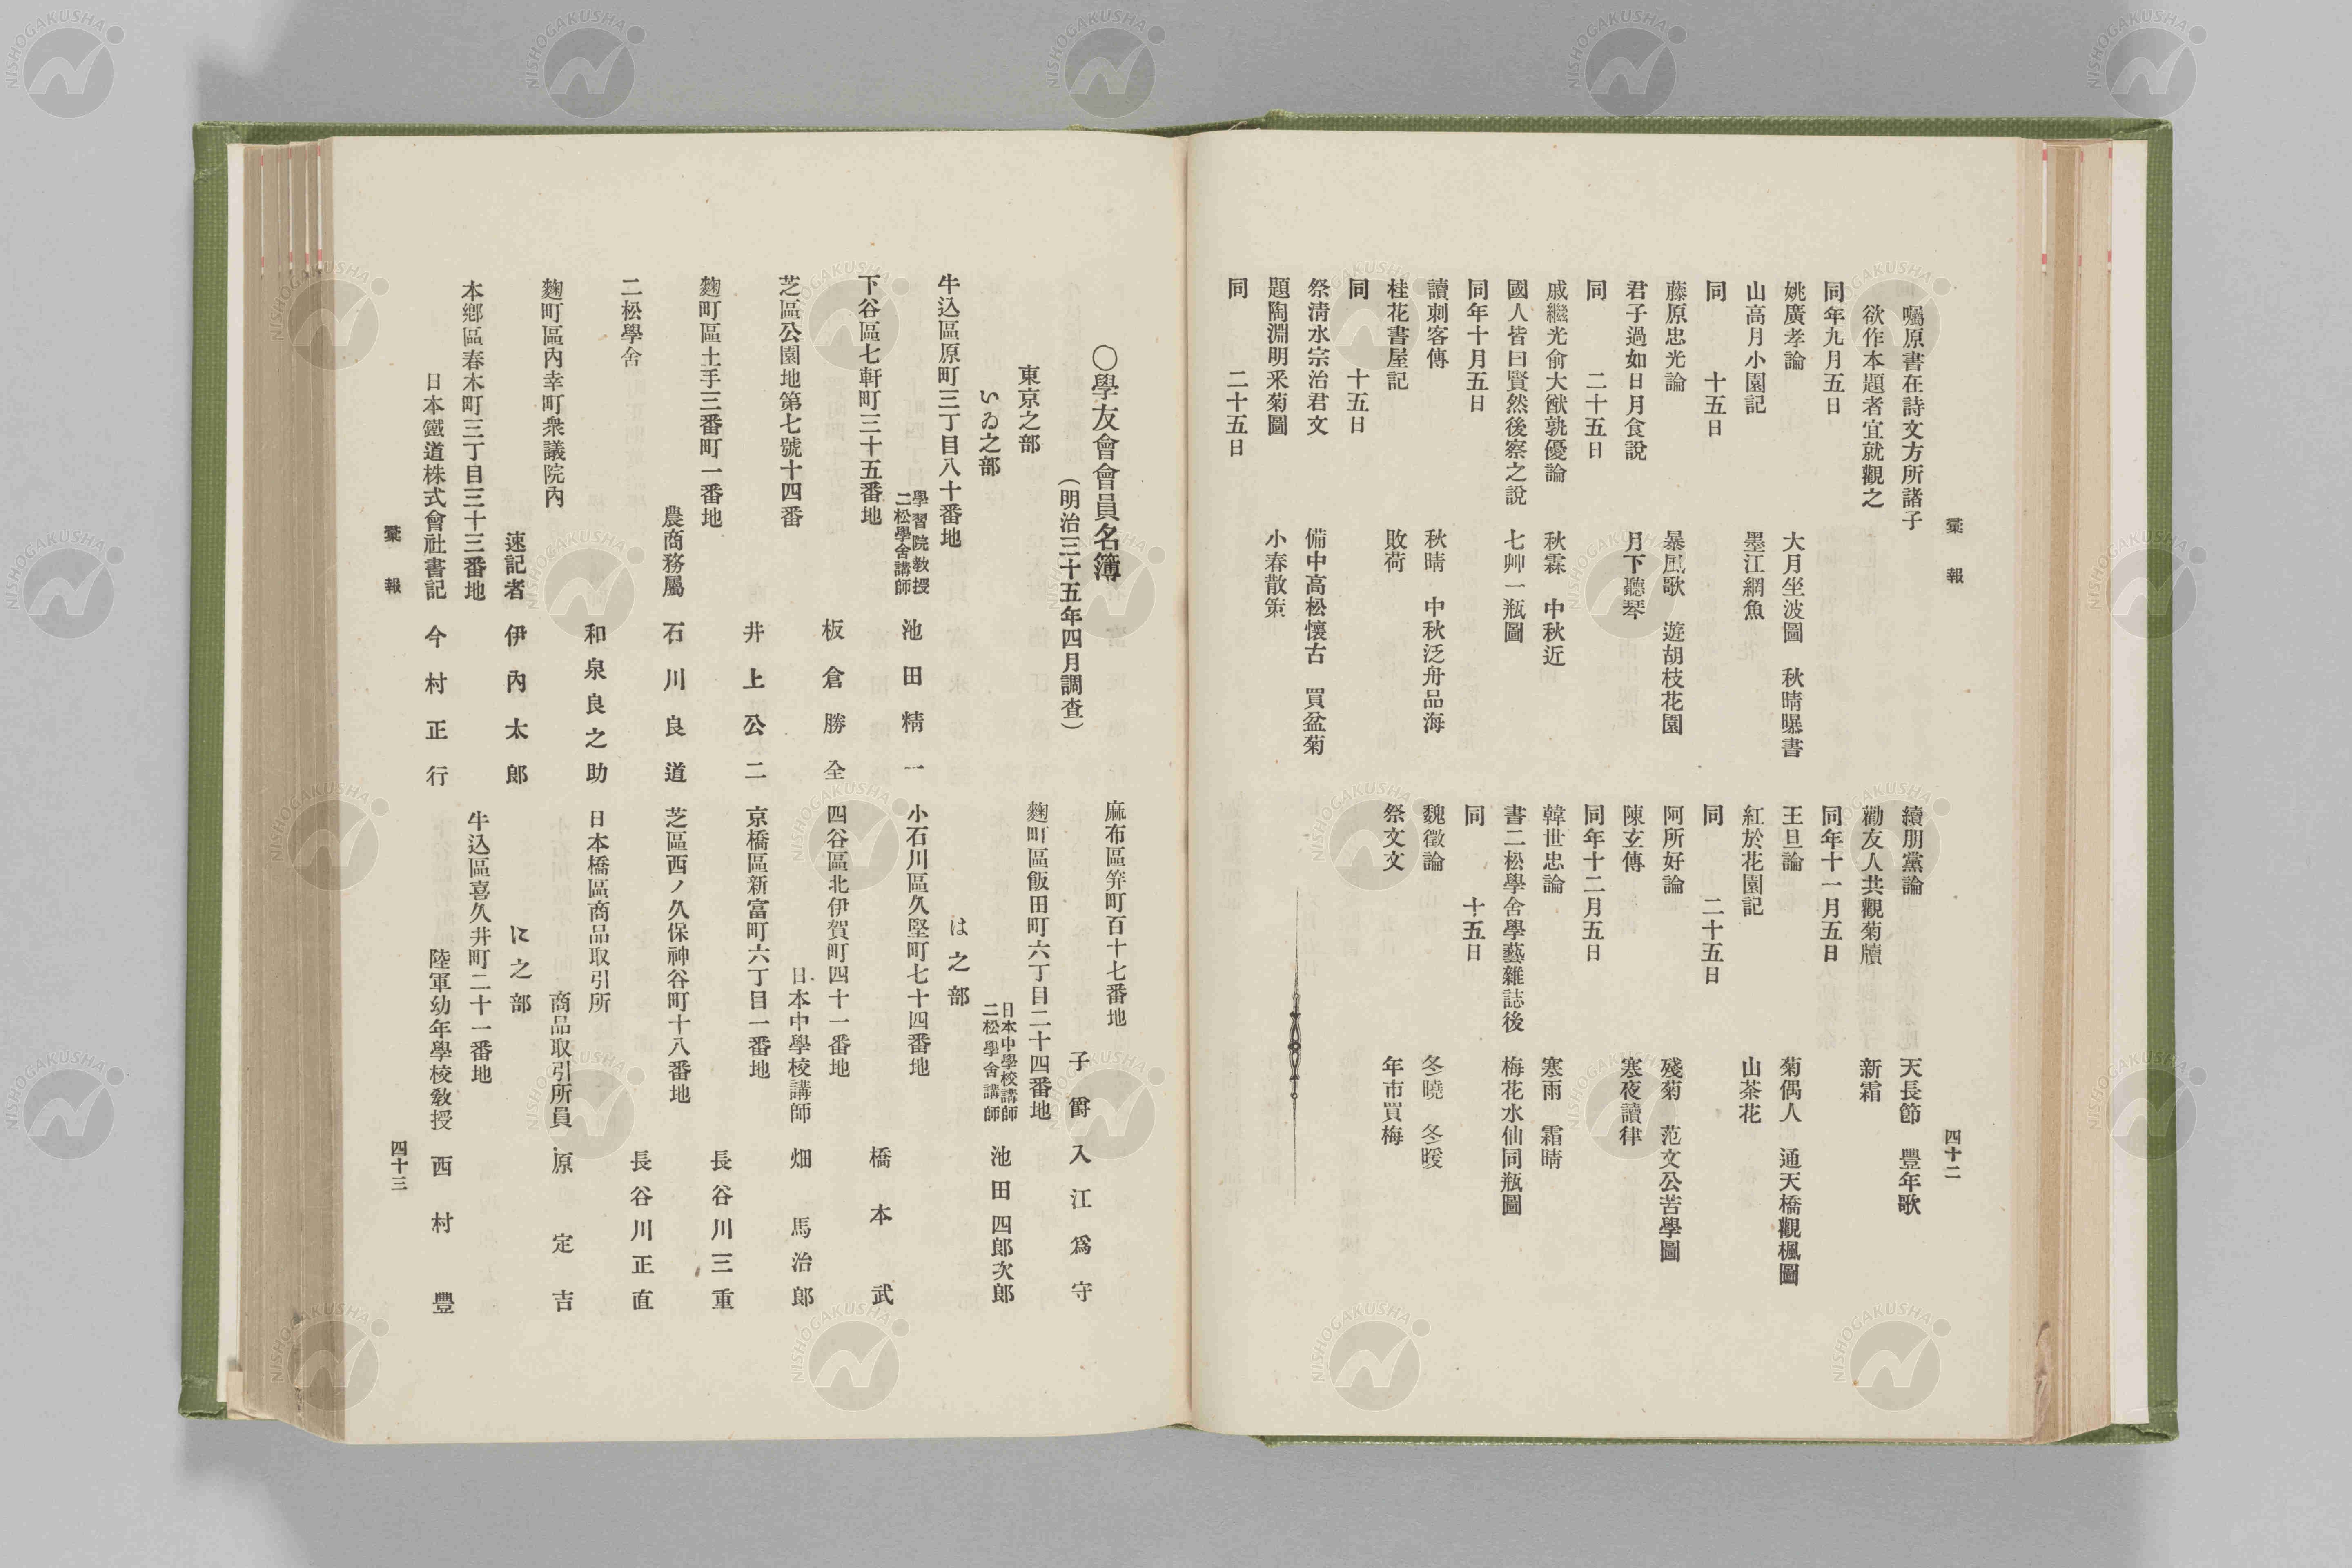 彙報
四十二
囑原書在詩文方所諸子
欲作本題者宜就觀之
同年九月五日
姚廣孝論　大月坐波圖　秋晴曝書
山高月小園記　墨江網魚
同　十五日
藤原忠光論　暴風歌　遊胡枝花園
君子過如日月食說　月下聽琴
同　二十五日
戚繼光俞大猷孰優論　秋霖　中秋近
國人皆曰賢然後察之說　七艸一瓶圖
同年十月五日
讀刺客傳　秋晴　中秋泛舟品海
桂花書屋記　敗荷
同　十五日
祭淸水宗治君文　備中高松懷古　買盆菊
題陶淵明釆菊圖　小春散策
同　二十五日
續朋黨論　天長節　豐年歌
勸友人共觀菊牘　新霜
同年十一月五日
王旦論　菊偶人　通天橋觀楓圖
紅於花園記　山茶花
同　二十五日
阿所好論　殘菊　范文公苦學圖
陳玄傳　寒夜讀律
同年十二月五日
韓世忠論　寒雨　霜晴
書二松學舍學藝雜誌後　梅花水仙同瓶圖
同　十五日
魏徵論　冬曉　冬暖
祭文文　年市買梅
〇學友會會員名簿
（明治三十五年四月調查）
東京之部
いゐ之部
牛込區原町三丁目八十番地
學習院敎授
二松學舍講師
池田精一
下谷區七軒町三十五番地
板倉勝全
芝區公園地第七號十四番
井上公二
麴町區土手三番町一番地
農商務屬　石川良道
二松學舍
和泉良之助
麴町區內幸町衆議院內
速記者　伊內太郎
本鄕區春木町三丁目三十三番地
日本鐵道株式會社書記　今村正行
麻布區笄町百十七番地
子爵　入江爲守
麴町區飯田町六丁目二十四番地
日本中學校講師
二松學舍講師
池田四郎次郎
は之部
小石川區久堅町七十四番地
橋本武
四谷區北伊賀町四十一番地
日本中學校講師　畑馬治郎
京橋區新富町六丁目一番地
長谷川三重
芝區西ノ久保神谷町十八番地
長谷川正直
日本橋區商品取引所
商品取引所員　原定吉
に之部
牛込區喜久井町二十一番地
陸軍幼年學校敎授　西村豐
彙報
四十三